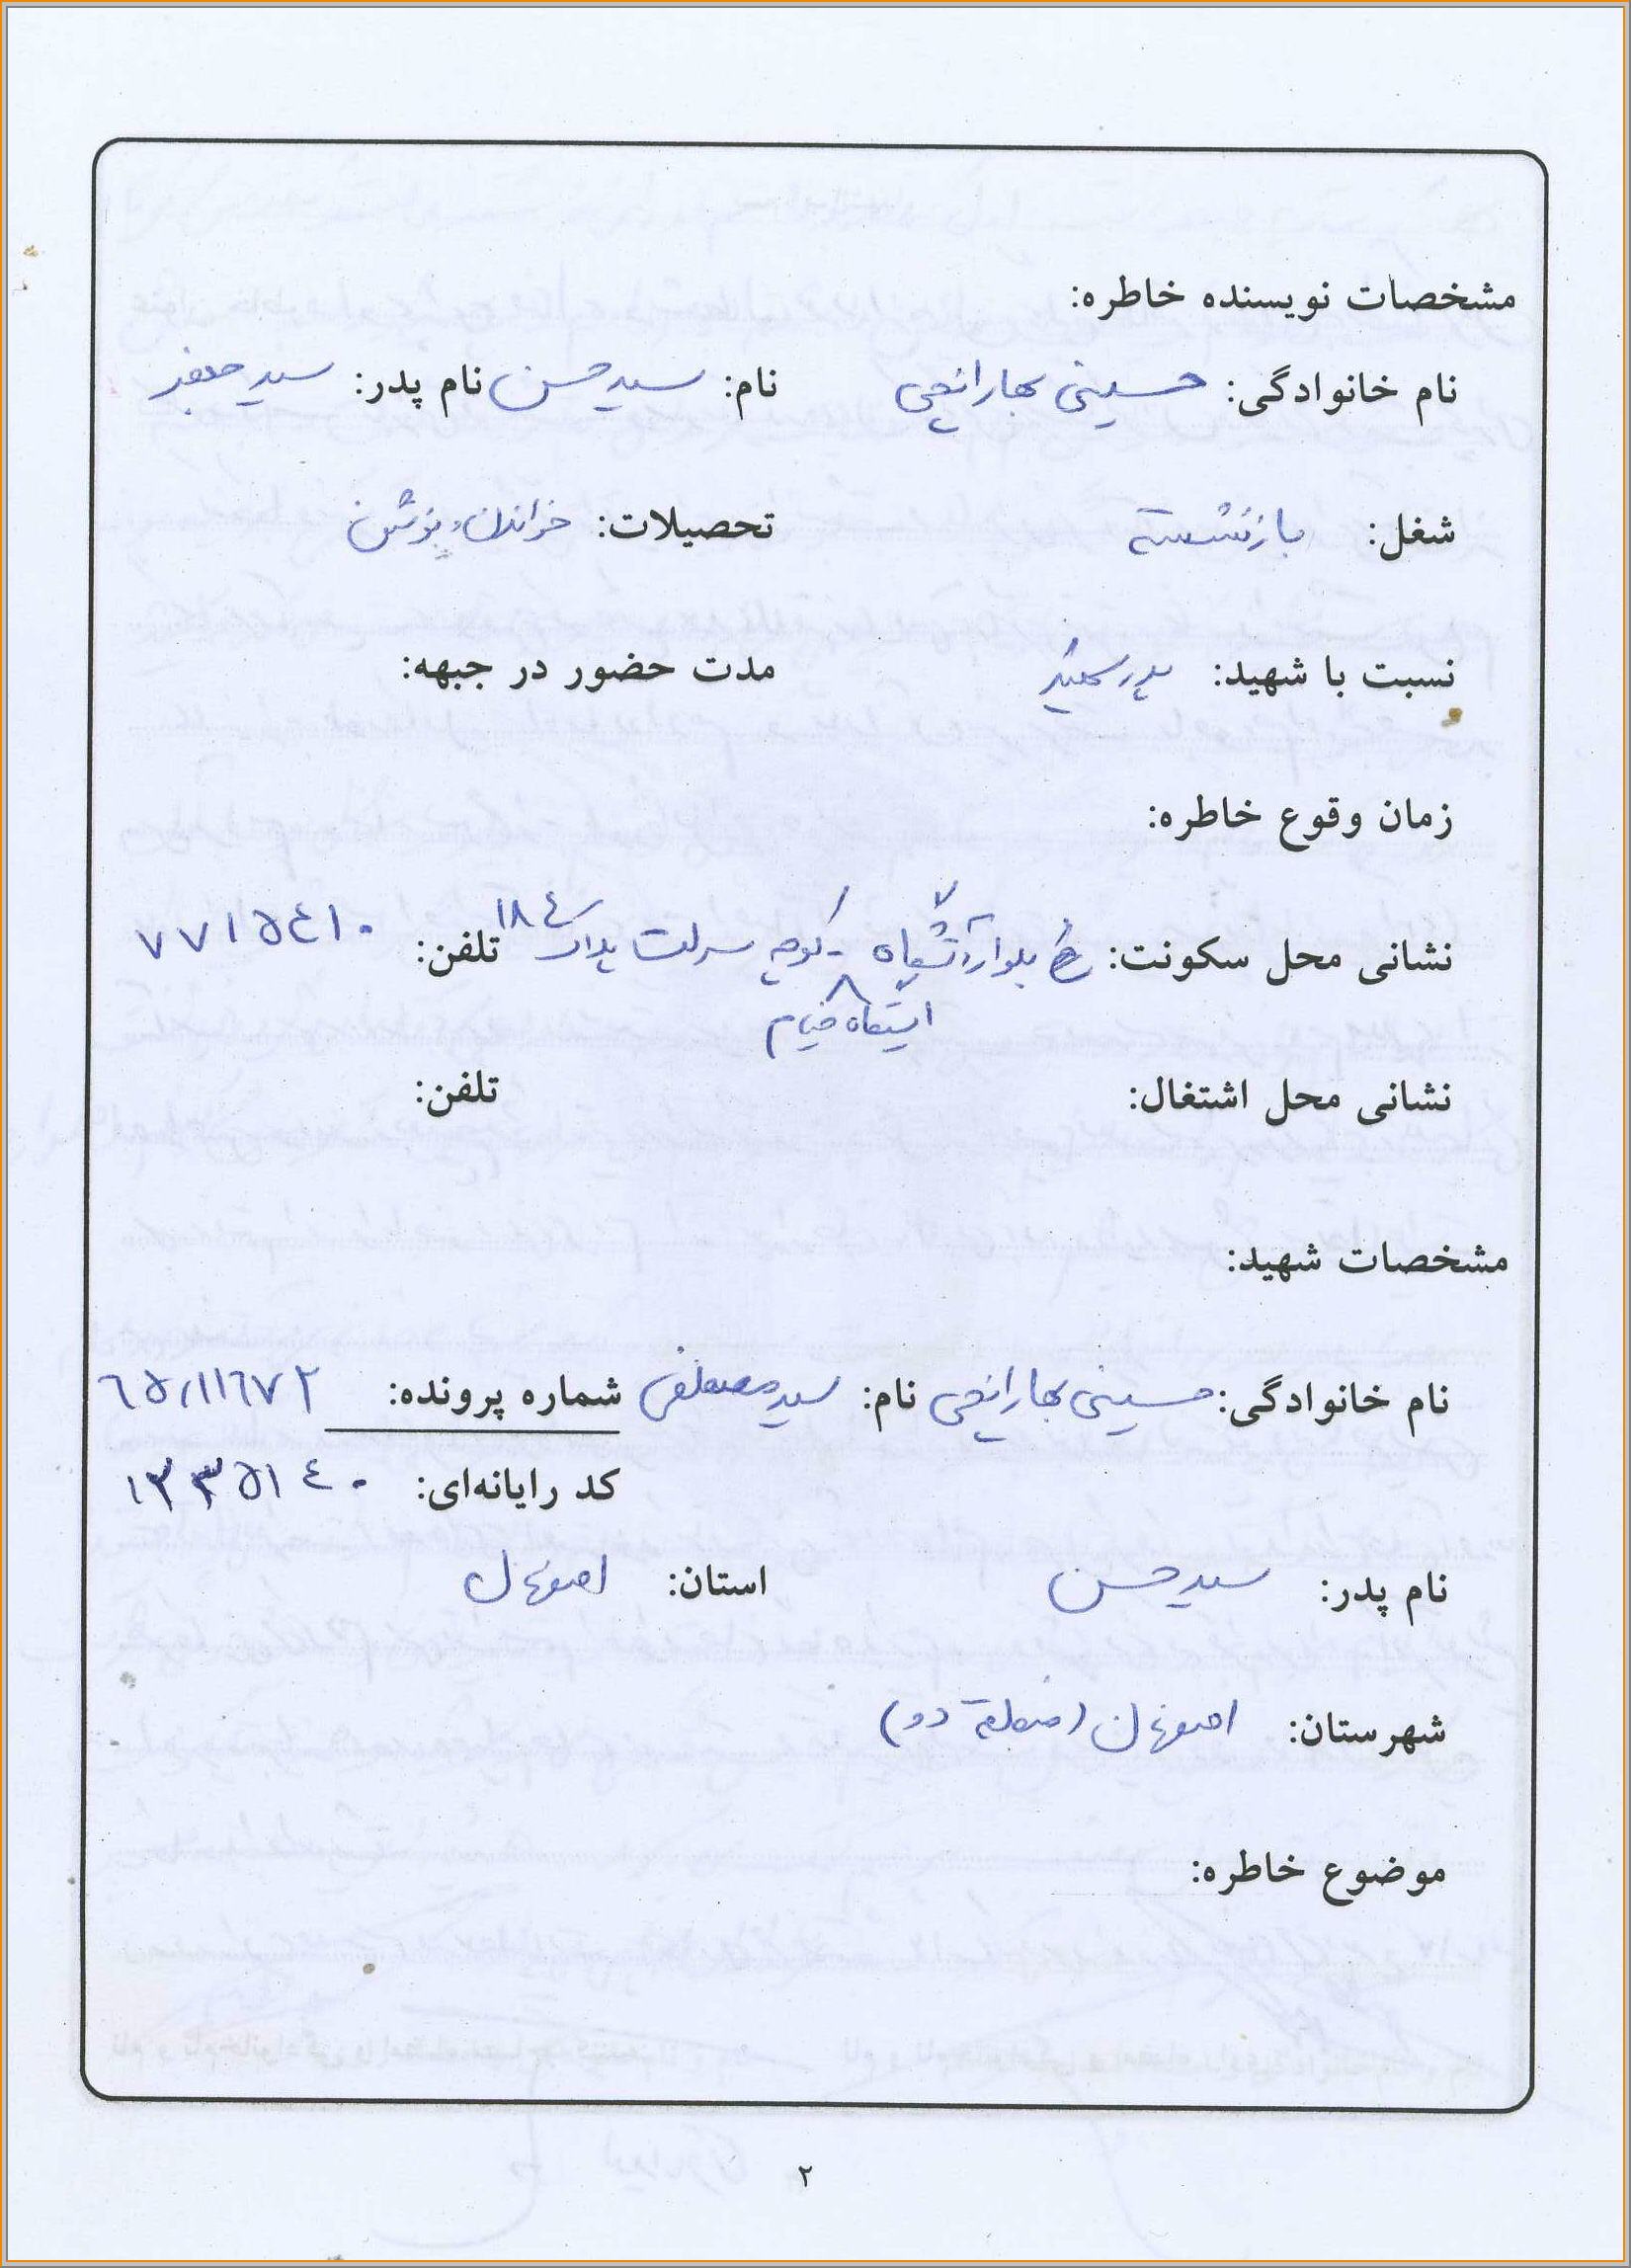 مشخصات نویسنده خاطره:
نام خانوادگی: حسینی بهارانچی نام: سیدحسن نام پدر: سیدجعفر
شغل: بازنشسته تحصیلات: خواندن و نوشتن
نسبت با شهید: پدر شهید مدت حضور در جبهه:
زمان وقوع خاطره:
نشانی محل سکونت: خ بلوار آتشگاه - کوچه پلاک ۱۸۴ تلفن: ۷۷۱۵۴۱۰
ایستگاه خیام
نشانی محل اشتغال: تلفن:
مشخصات شهید:
نام خانوادگی: حسینی بهارانچی نام: سیدمصطفی شماره پرونده: ۶۵/۱۱۶۷۲
کد رایانه‌ای: ۱۳۳۵۱۴۰
نام پدر: سیدحسن استان: اصفهان
شهرستان: اصفهان (منطقه دو)
موضوع خاطره:
۲